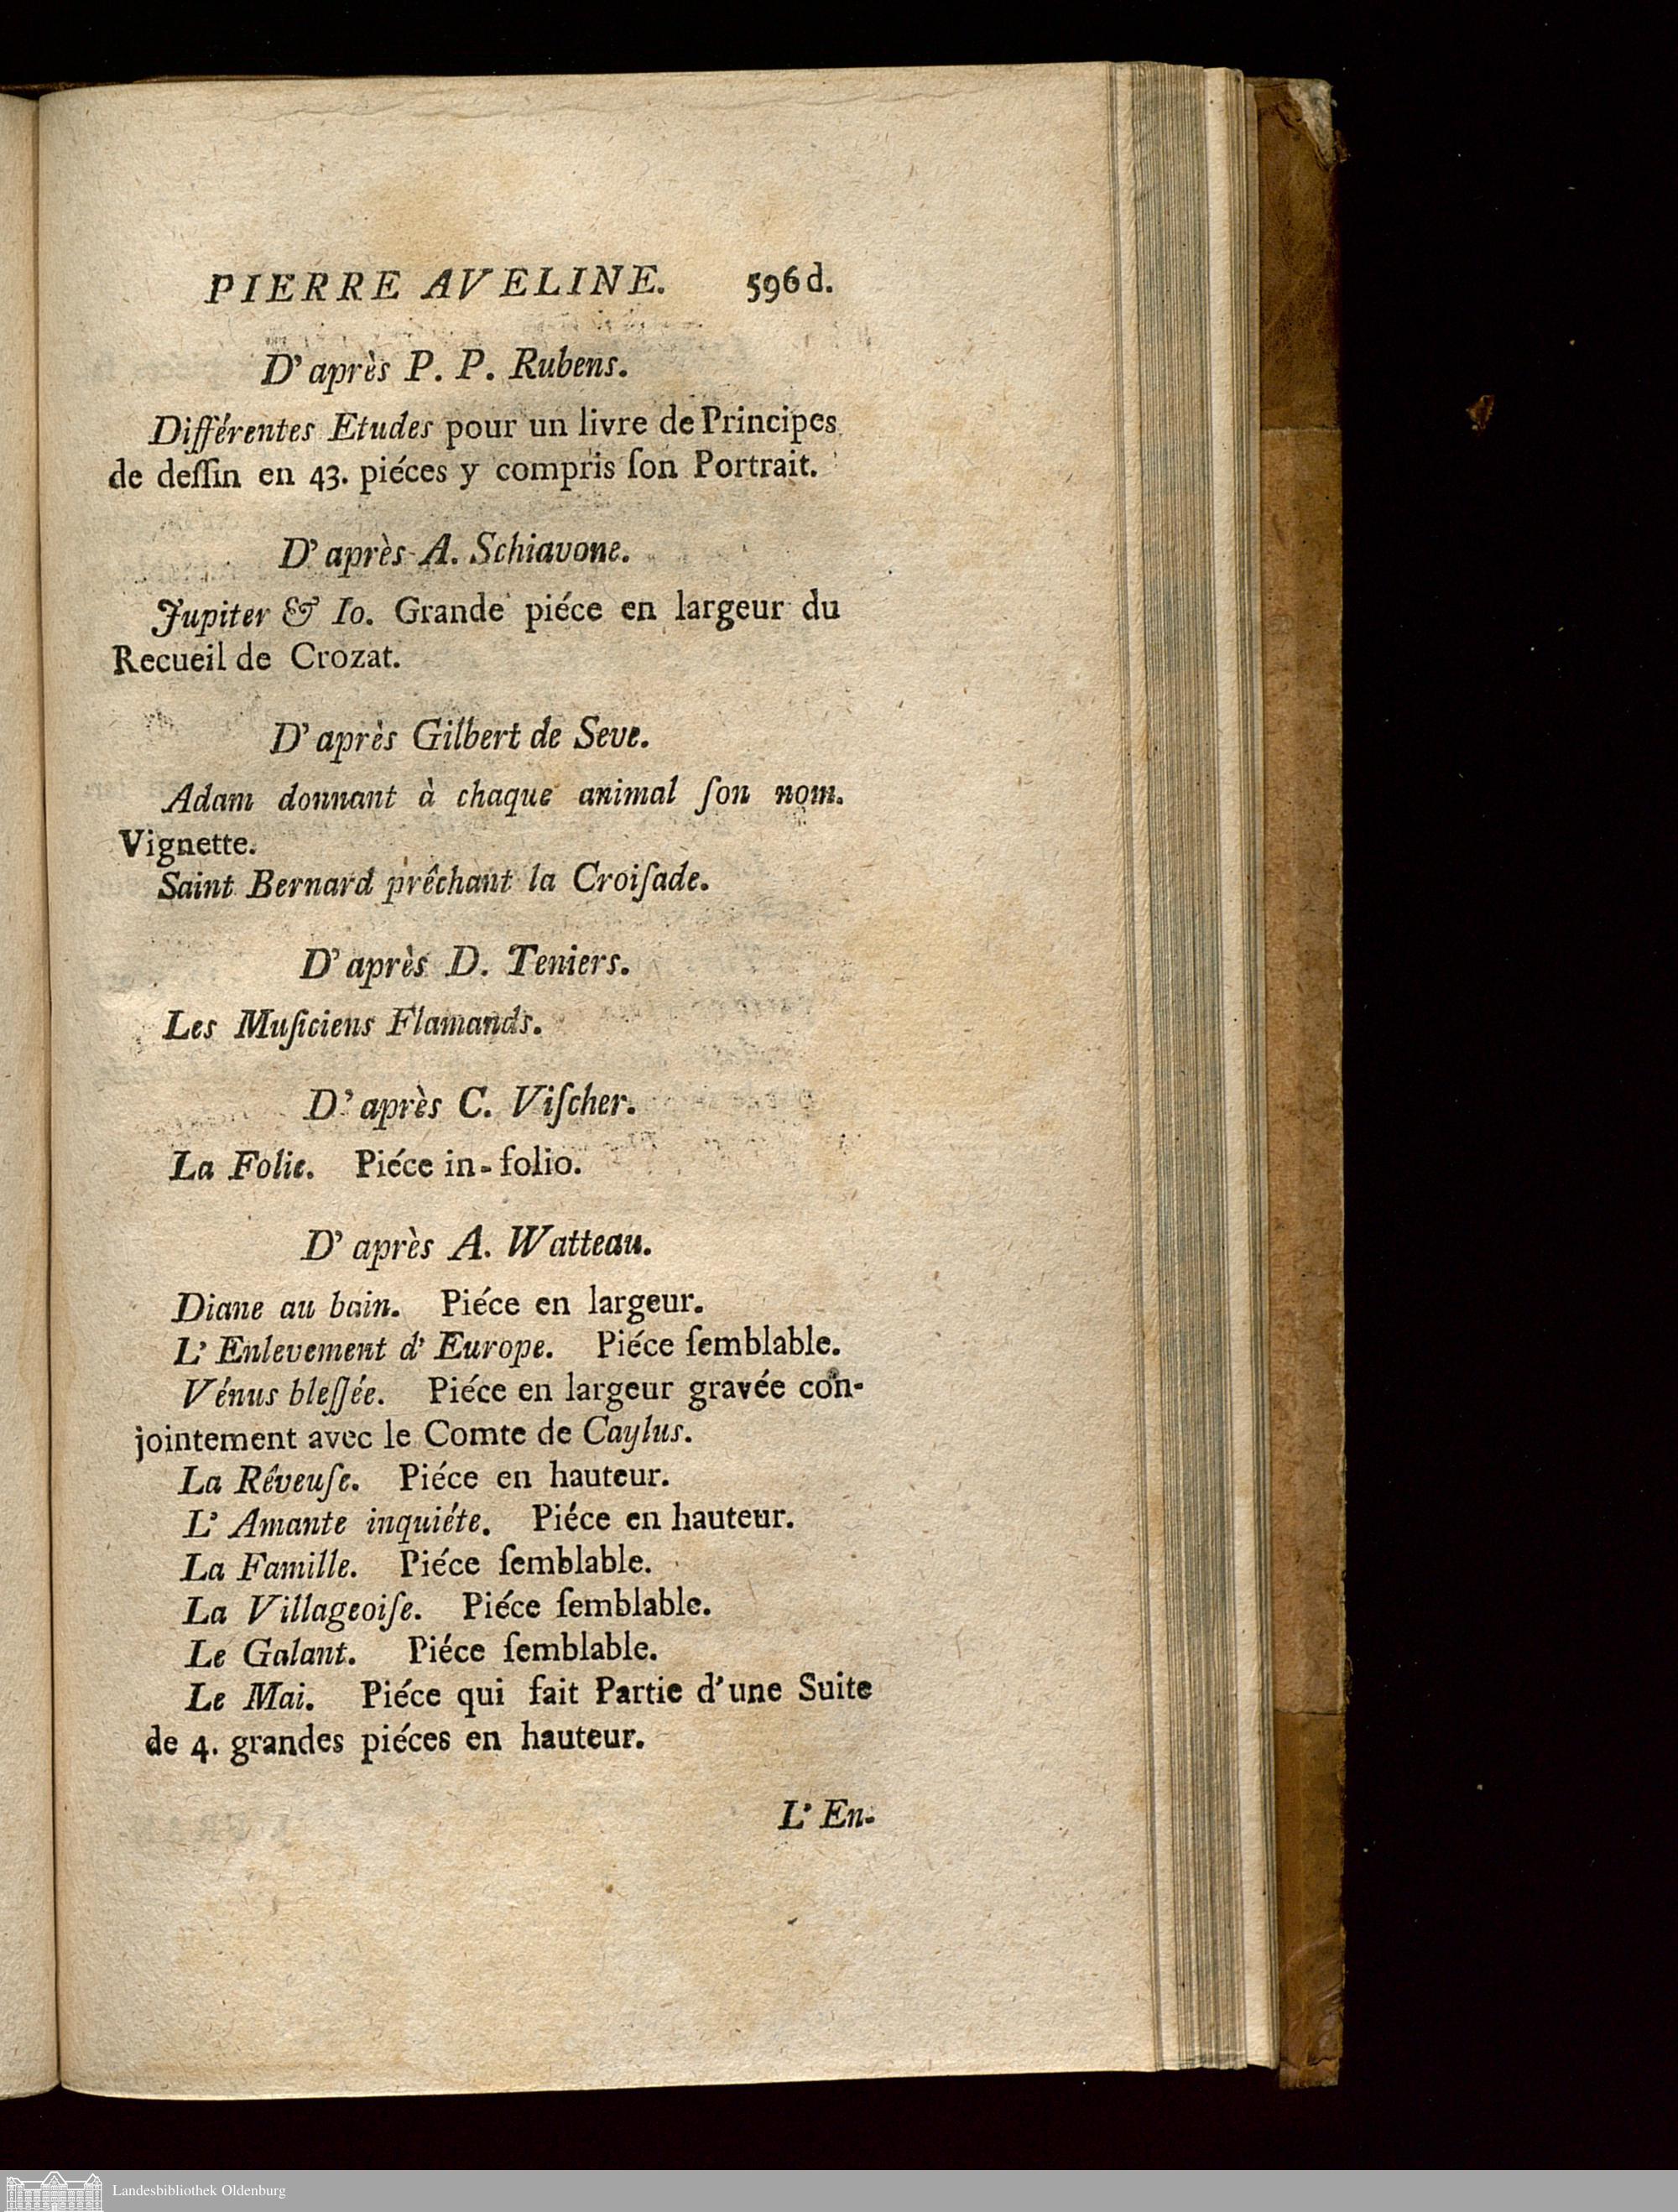 PIERRE AVELINE. 596d.
D' après P. P. Rubens.
Différentes Etudes pour un livre de Principes
de deſſin en 43. piéces y compris ſon Portrait.
D' après A. Schiavone.
Jupiter & Io. Grande piéce en largeur du
Recueil de Crozat.
D' après Gilbert de Seve.
Adam donnant à chaque animal ſon nom.
Vignette.
Saint Bernard prêchant la Croiſade.
D' après D. Teniers.
Les Muſiciens Flamands.
D' après C. Viſcher.
La Folie. Piéce in-folio.
D' après A. Watteau.
Diane au bain. Piéce en largeur.
L' Enlevement d' Europe. Piéce ſemblable.
Vénus bleſſée. Piéce en largeur gravée con-
jointement avec le Comte de Caylus.
La Rêveuſe. Piéce en hauteur.
L' Amante inquiéte. Piéce en hauteur.
La Famille. Piéce ſemblable.
La Villageoiſe. Piéce ſemblable.
Le Galant. Piéce ſemblable.
Le Mai. Piéce qui fait Partie d'une Suite
de 4. grandes piéces en hauteur.
L' En-
Landesbibliothek Oldenburg